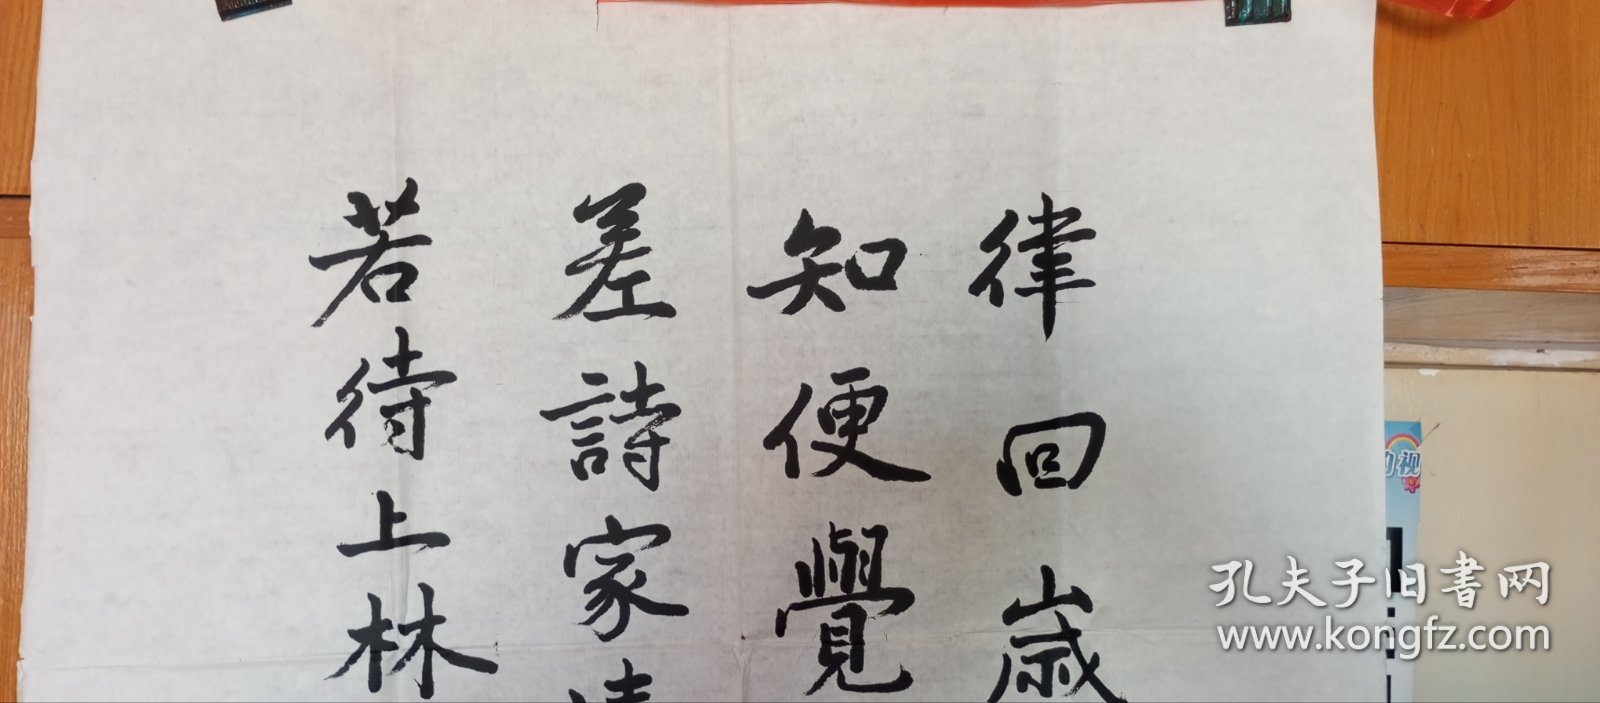 律回歲
知便覺
差詩家清
若待上林
的视
孔夫子旧书网
www.kongfz.com